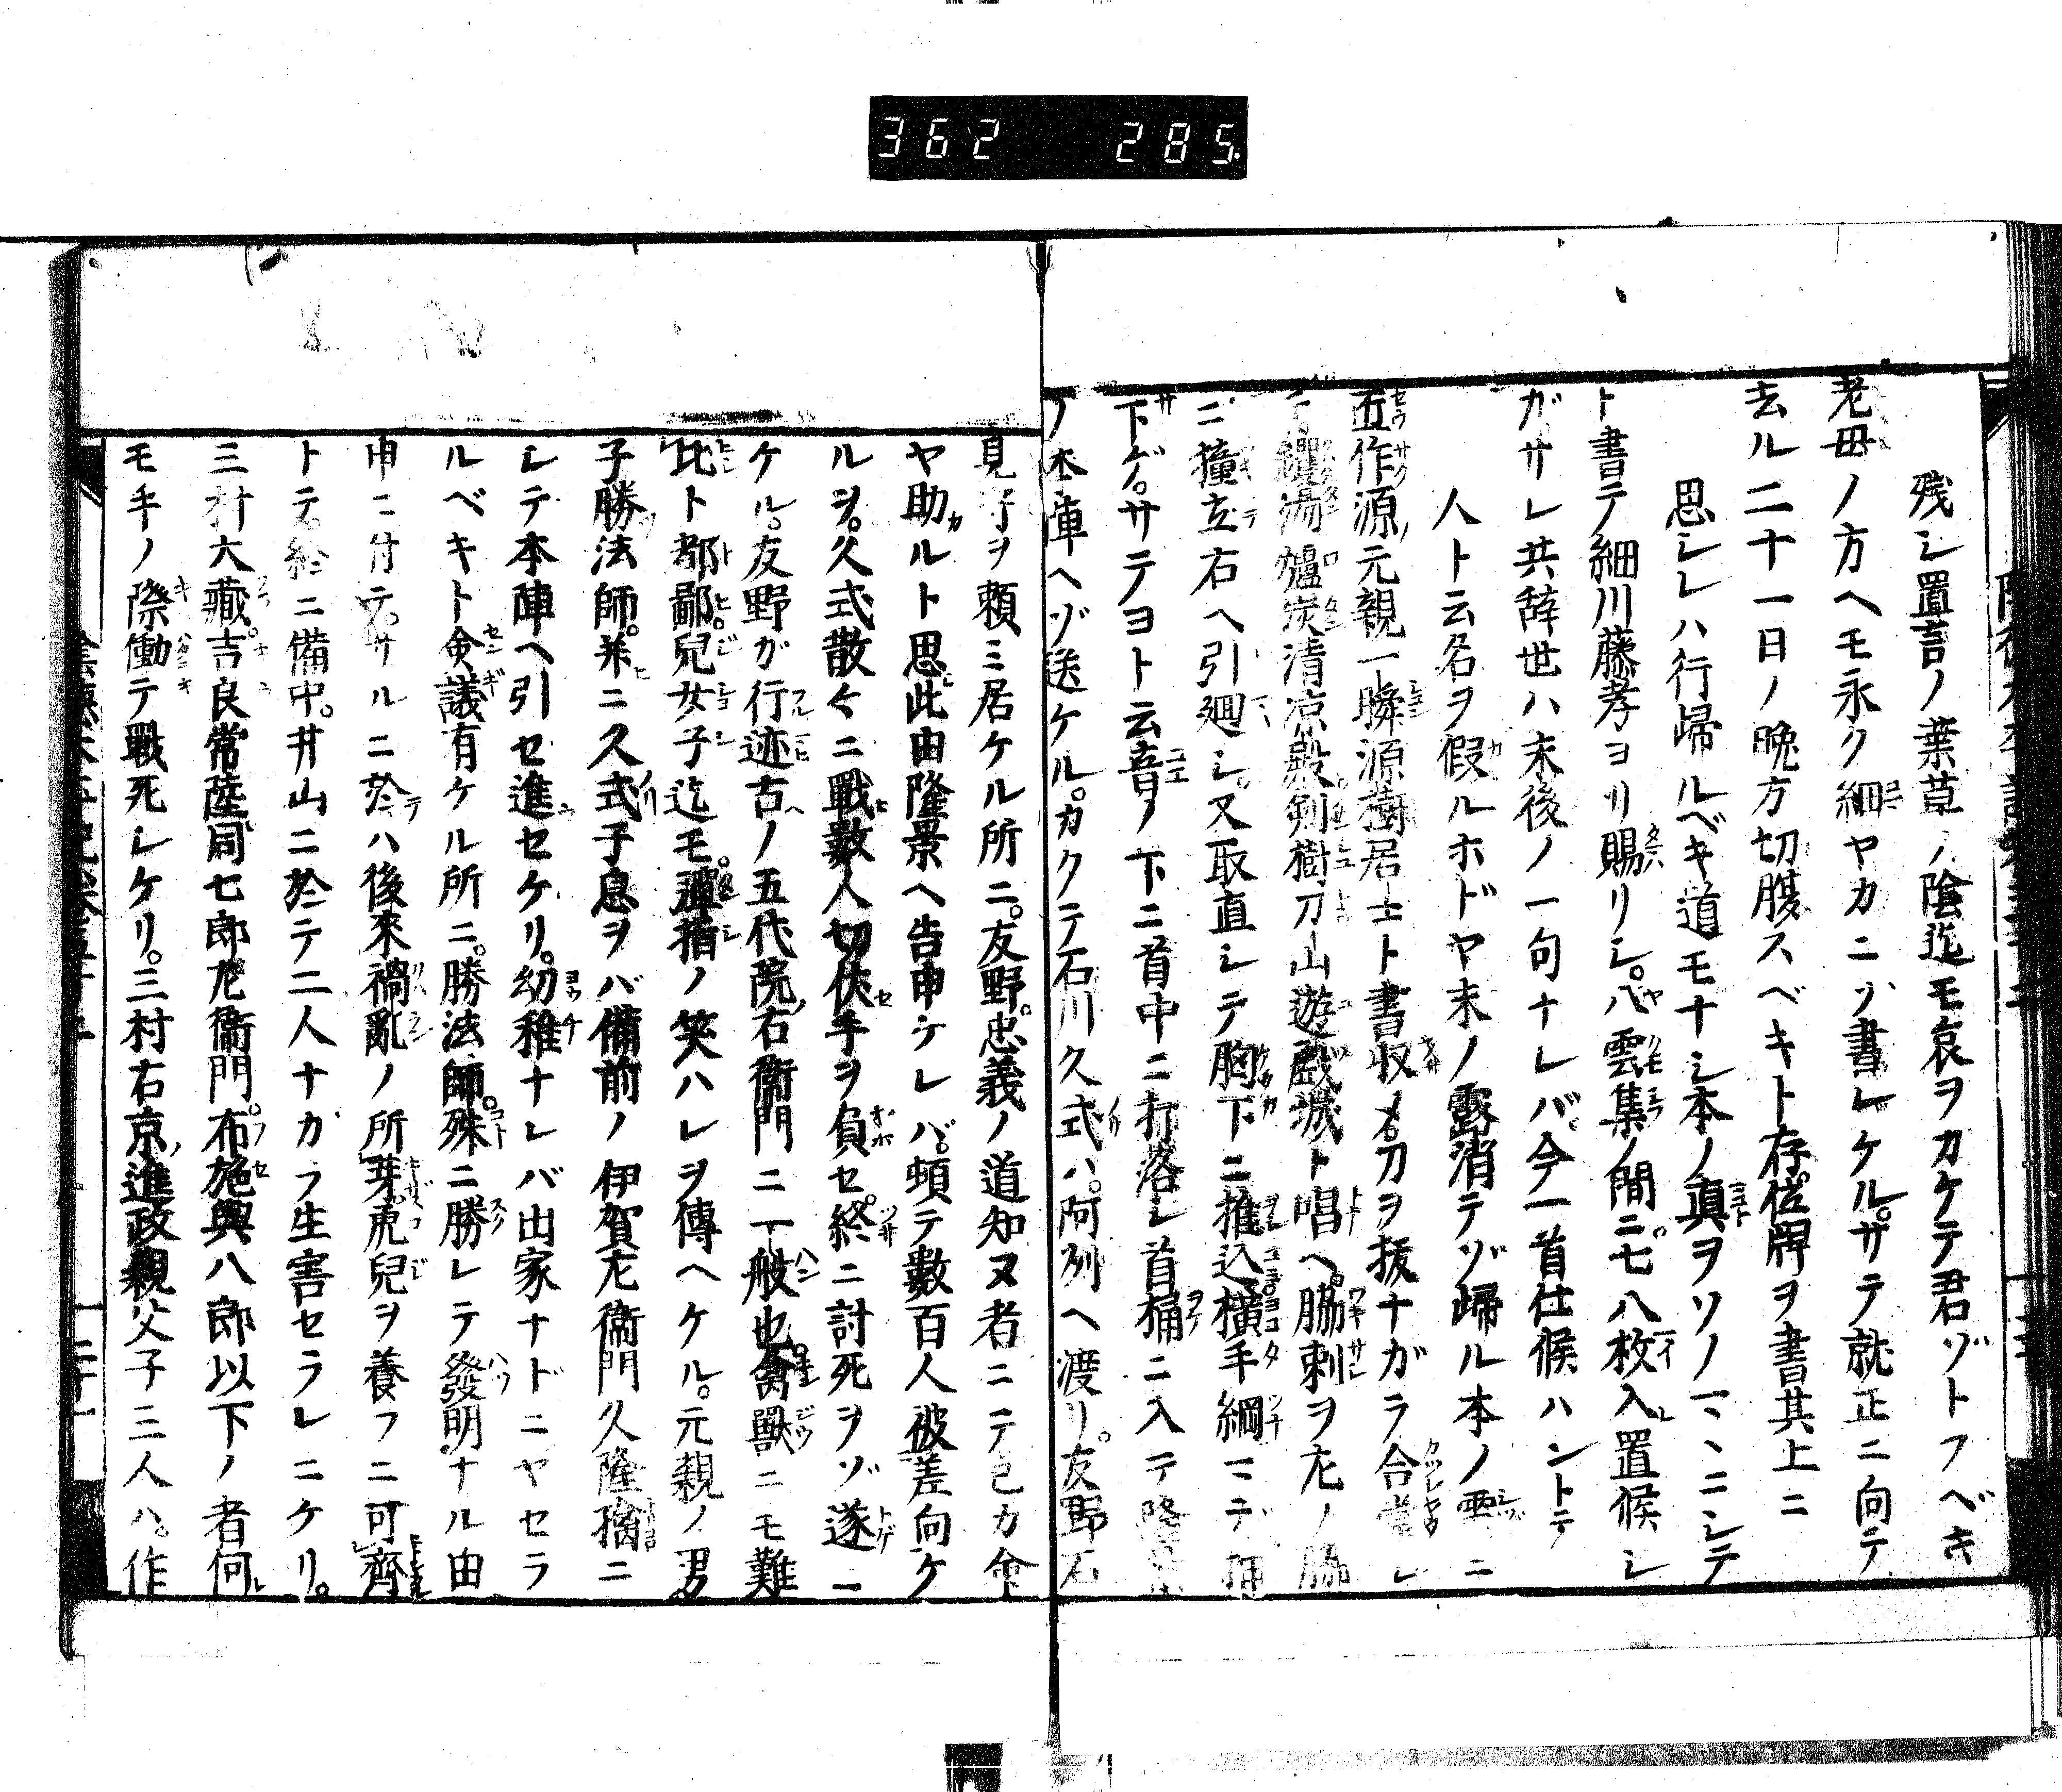 362 285.
残シ置言ノ葉草ノ陰迄モ哀ヲカケテ君ゾトフベキ
老母ノ方ヘモ永ク細ヤカニゾ書レケル。サテ就正ニ向テ
去ル二十一日ノ晩方切腹スベキト存。位牌ヲ書其上ニ
思シレハ行歸ルベキ道モナシ本ノ真ヲソノマヽニシテ
ト書テ細川藤孝ヨリ賜リシ。八雲集ノ間ニ七八枚入置候シ
ガサレ共辞世ハ末後ノ一句ナレバ。今一首仕候ハントテ
人ト云名ヲ假ルホドヤ末ノ露消テゾ歸ル本ノ雫ニ
匠作源元親一瞬源樹居士ト書収メ。刀ヲ抜ナガラ合掌シ
鑊湯爐炭清凉殿剣樹刀山遊戯城ト唱ヘ。脇刺ヲ左ノ脇
ニ撞立右ヘ引廻シ。又取直シテ胸下ニ推込横手綱マデ
下ゲ。サテヨト云音ノ下ニ首中ニ打落シ首桶ニ入テ隆景
ノ本庫ヘゾ送ケル。カクテ石川久式ハ。阿列ヘ渡リ。友野石
見守ヲ頼ミ居ケル所ニ。友野。忠義ノ道知ヌ者ニテ己カ命
ヤ助ルト思此由隆景ヘ告申ケレバ。頓テ數百人被差向ケ
ルヲ。久式散々ニ戰數人切伏手ヲ負セ。終ニ討死ヲゾ遂ニ
ケル。友野ガ行迹古ノ五代院右衞門ニ一般也。禽獸ニモ難
比ト都鄙。兒女子迄モ。彈指ノ笑ハレヲ傳ヘケル。元親ノ男
子勝法師。并ニ久式子息ヲバ備前ノ伊賀左衞門久隆擒ニ
シテ本陣ヘ引セ進セケリ。幼稚ナレバ出家ナドニヤセラ
ルベキト僉議有ケル所ニ。勝法師。殊ニ勝レテ發明ナル由
申ニ付テ。サルニ於テハ後來禍亂ノ所芽。虎兒ヲ養フニ可齊
トテ。終ニ備中。井山ニ於テ二人ナカラ生害セラレニケリ。
三村大藏。吉良常陸。同七郎左衞門。布施與八郎以下ノ者何
モ手ノ際働テ戰死シケリ。三村右京進政親父子三人ハ。作